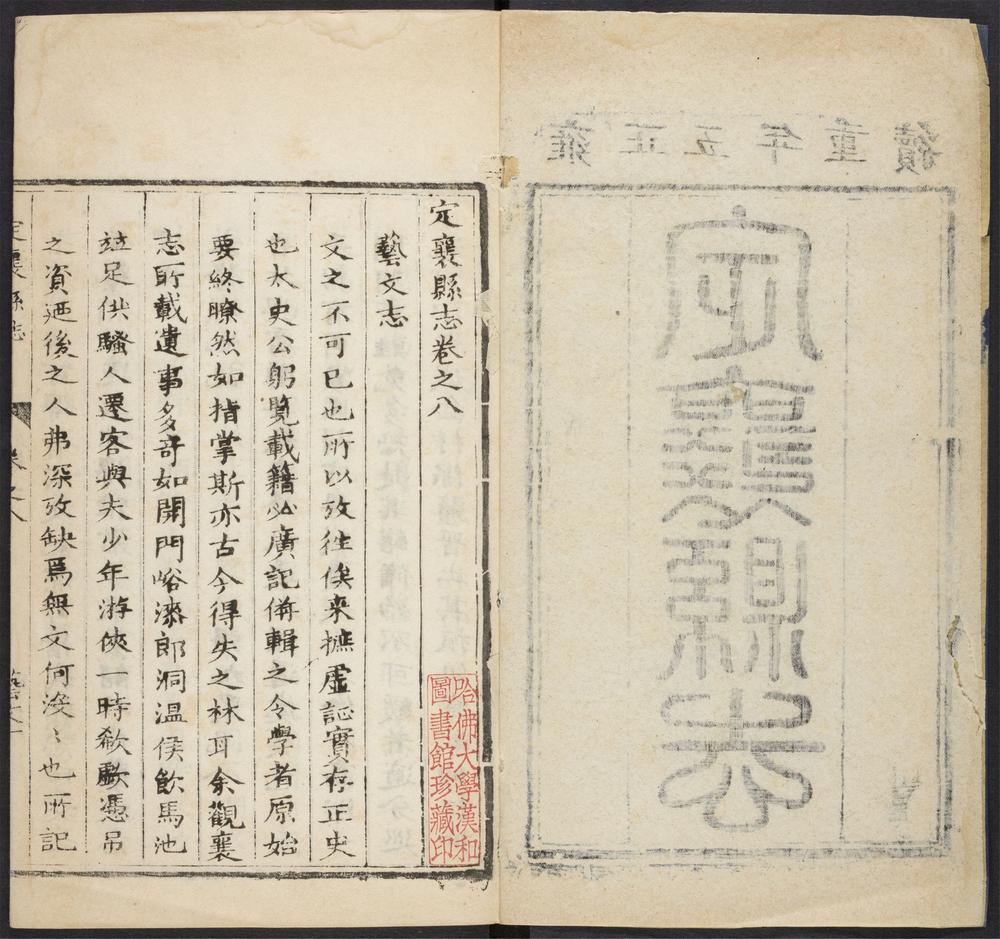 雍正五年重續
定襄縣志
定襄縣志卷之八
藝文志
文之不可已也所以攷往俟来摭虛証實存正史
也太史公躬覽載籍必廣記偹輯之令學者原始
要終瞭然如指掌斯亦古今得失之林耳余觀襄
志所載遺事多奇如開門峪漆郎洞温侯飲馬池
竝足供騷人遷客與夫少年游俠一時欷歔憑吊
之資廼後之人弗深攷缺焉無文何湥〻也所記
定襄縣志
卷之八
藝文一
哈佛大學漢和
圖書館珍藏印